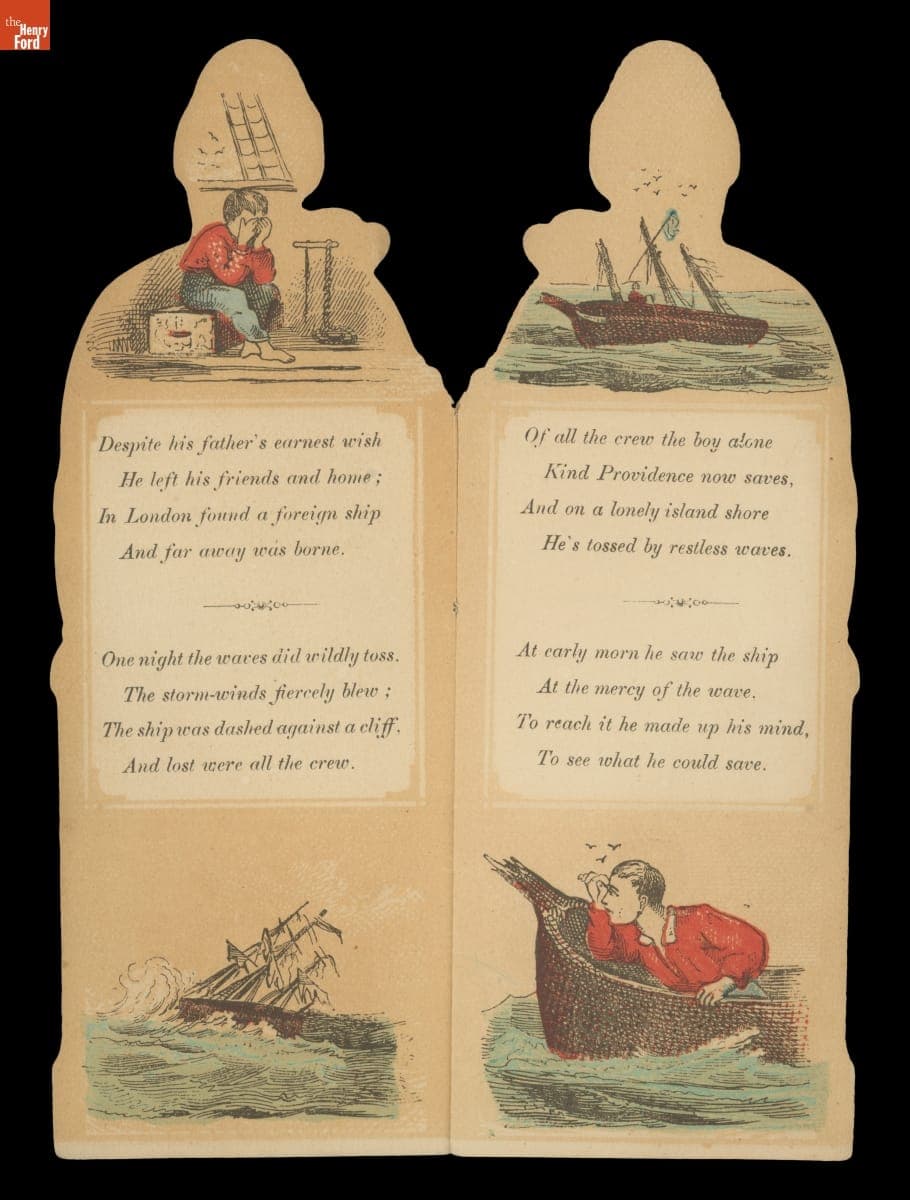 the
Henry
Ford
Despite his father's earnest wish
He left his friends and home;
In London found a foreign ship
And far away was borne.
One night the waves did wildly toss.
The storm-winds fiercely blew;
The ship was dashed against a cliff,
And lost were all the crew.
Of all the crew the boy alone
Kind Providence now saves,
And on a lonely island shore
He's tossed by restless waves.
At early morn he saw the ship
At the mercy of the wave.
To reach it he made up his mind,
To see what he could save.